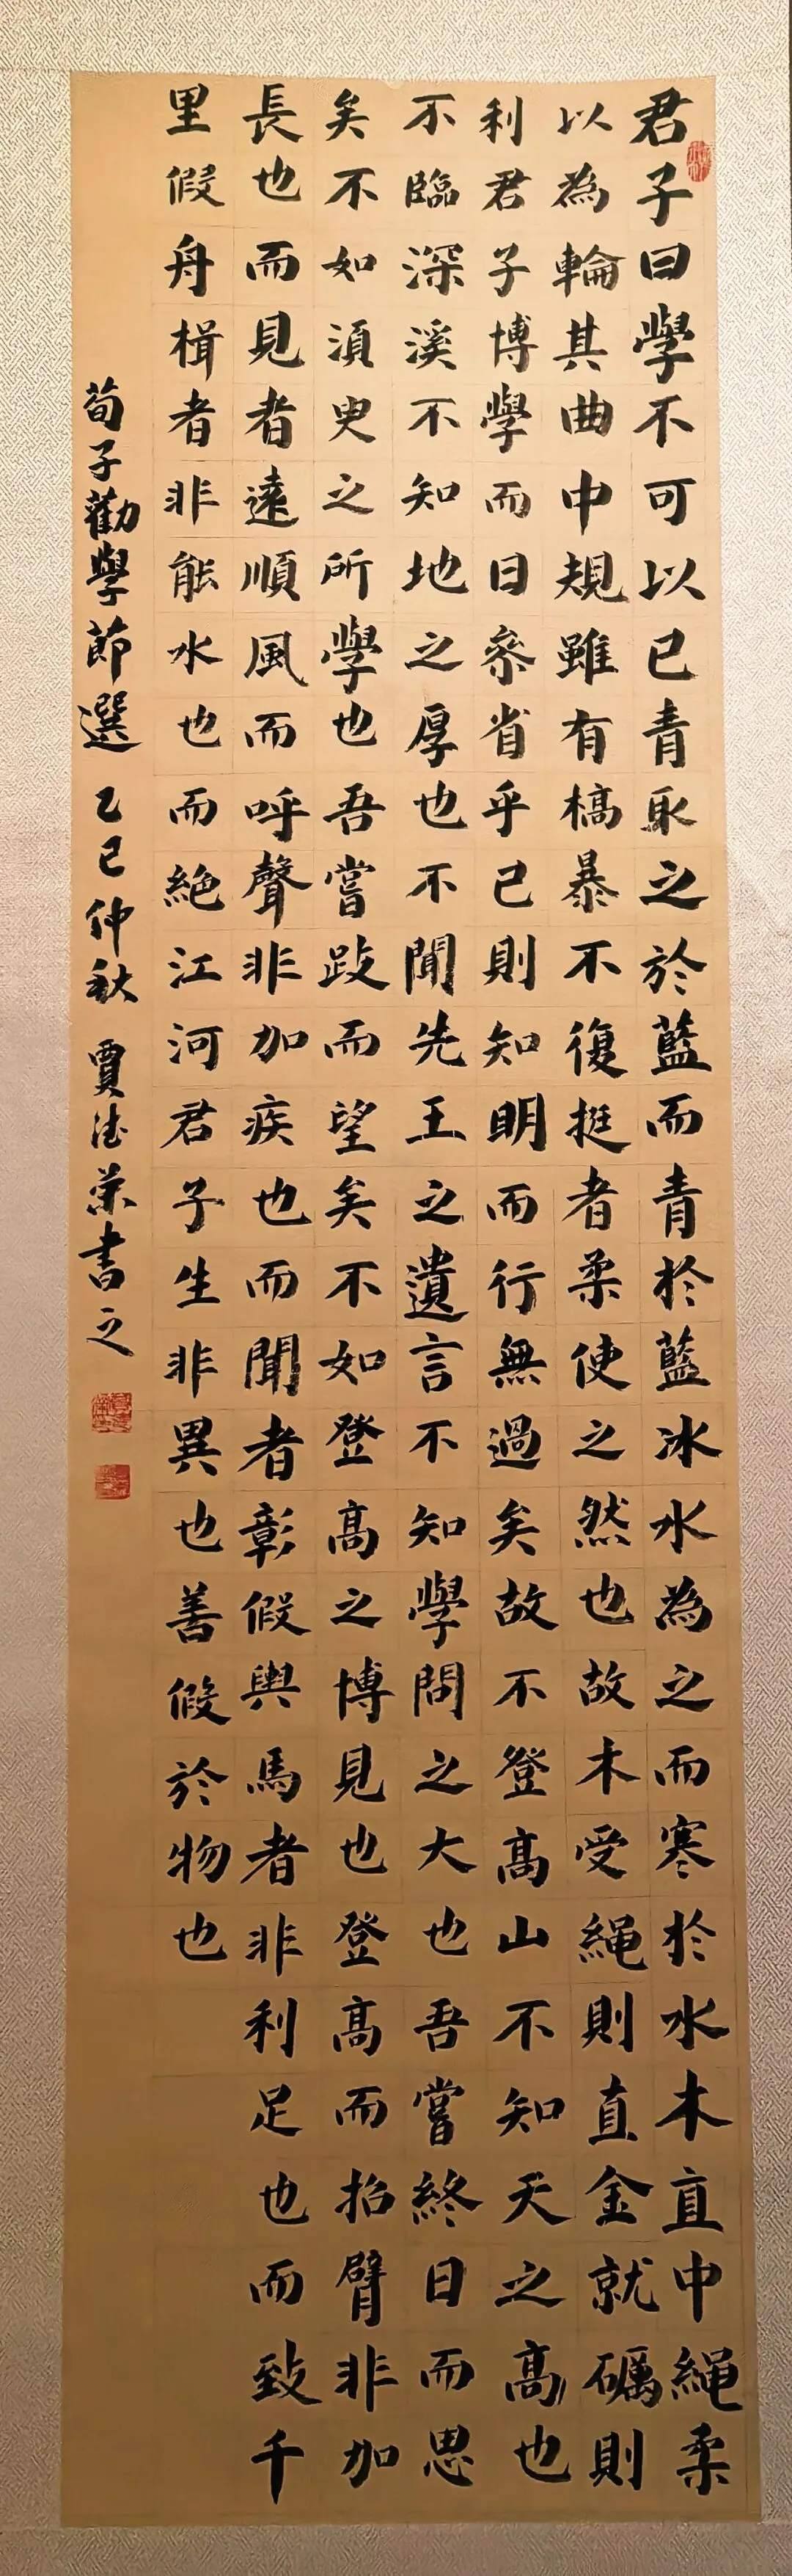 君子曰學不可以已青取之於藍而青於藍冰水為之而寒於水木直中繩柔
以為輪其曲中規雖有槁暴不復挺者柔使之然也故木受繩則直金就礪則
利君子博學而日參省乎己則知明而行無過矣故不登高山不知天之高也
不臨深溪不知地之厚也不聞先王之遺言不知學問之大也吾嘗終日而思
矣不如須臾之所學也吾嘗跂而望矣不如登高之博見也登高而招臂非加
長也而見者遠順風而呼聲非加疾也而聞者彰假輿馬者非利足也而致千
里假舟楫者非能水也而絕江河君子生非異也善假於物也
荀子勸學節選 乙巳仲秋 賈德榮書之